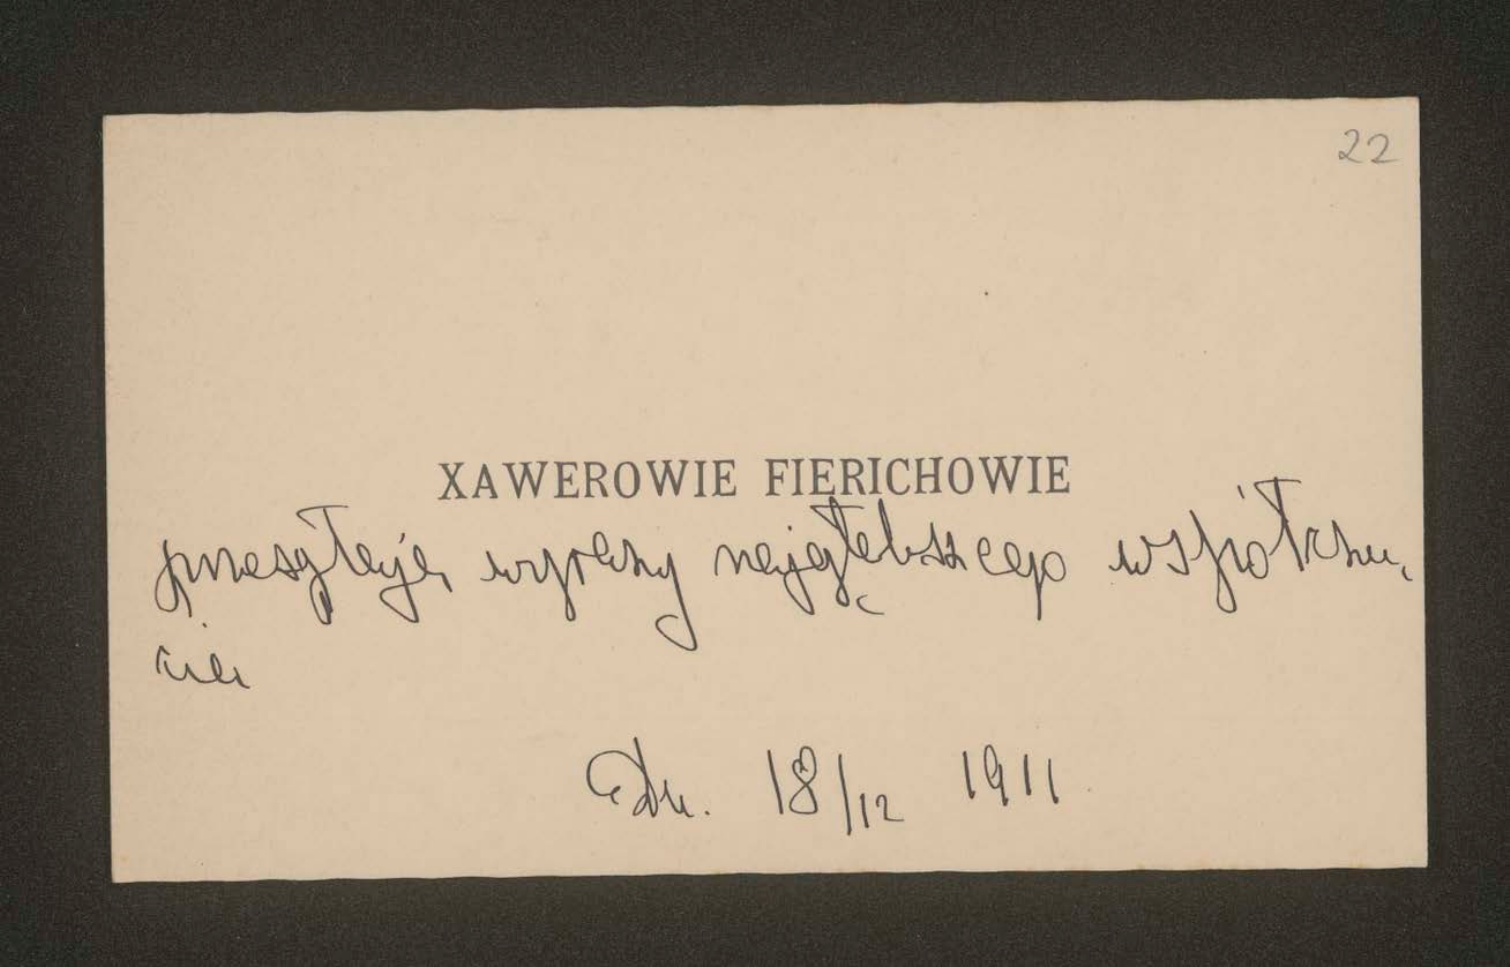 22
XAWEROWIE FIERICHOWIE
przesyłają wyrazy najgłębszego współczu,
cia
Dn. 18/12 1911